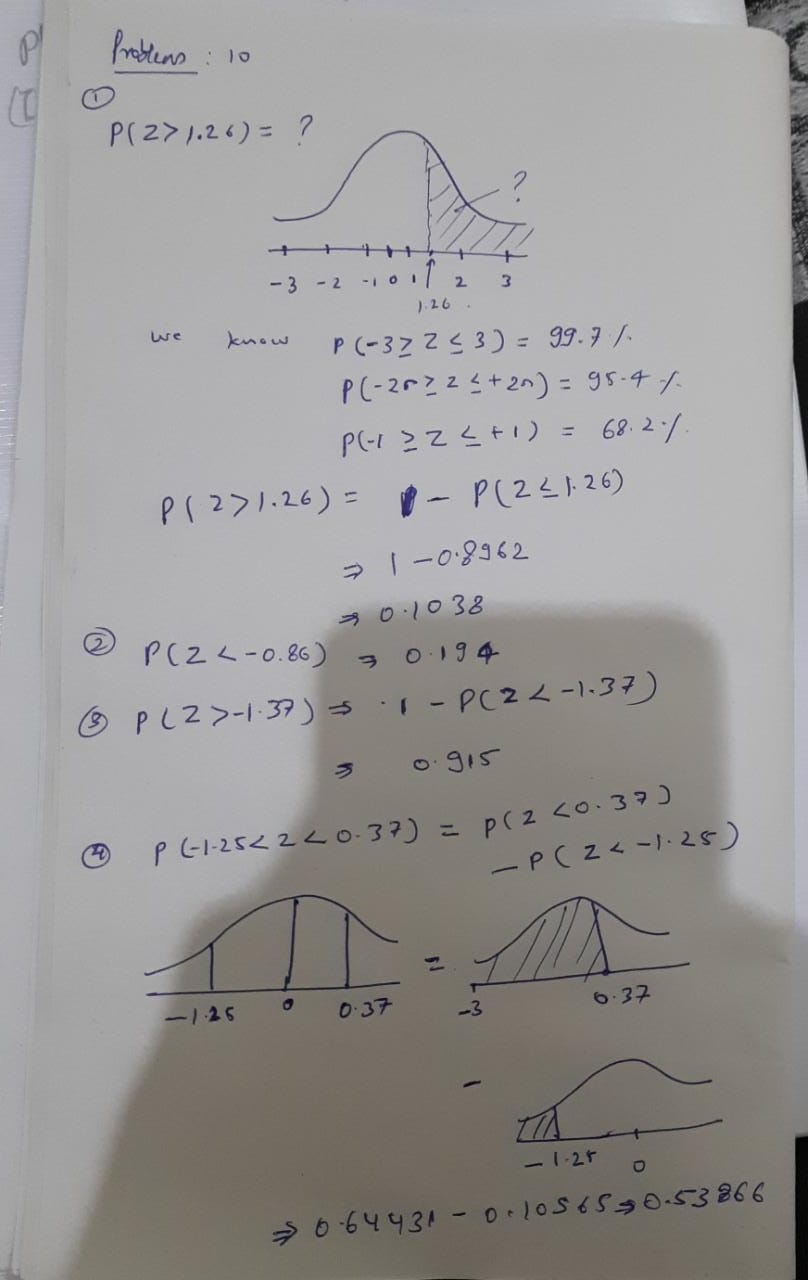 Problem : 10
①
P(Z > 1.26) = ?
?
-3 -2 -1 0 1 2 3
1.26
We know P(-3 ≥ Z ≤ 3) = 99.7 %.
P(-2σ ≥ Z ≤ +2σ) = 95.4 %.
P(-1 ≥ Z ≤ +1) = 68.2 %.
P(Z > 1.26) = 1 - P(Z ≤ 1.26)
⇒ 1 - 0.8962
⇒ 0.1038
② P(Z < -0.86) ⇒ 0.194
③ P(Z > -1.37) ⇒ 1 - P(Z < -1.37)
⇒ 0.915
④ P(-1.25 < Z < 0.37) = P(Z < 0.37)
- P(Z < -1.25)
=
-1.25 0 0.37 -3 0.37
-
-1.25 0
⇒ 0.64431 - 0.10565 ⇒ 0.53866